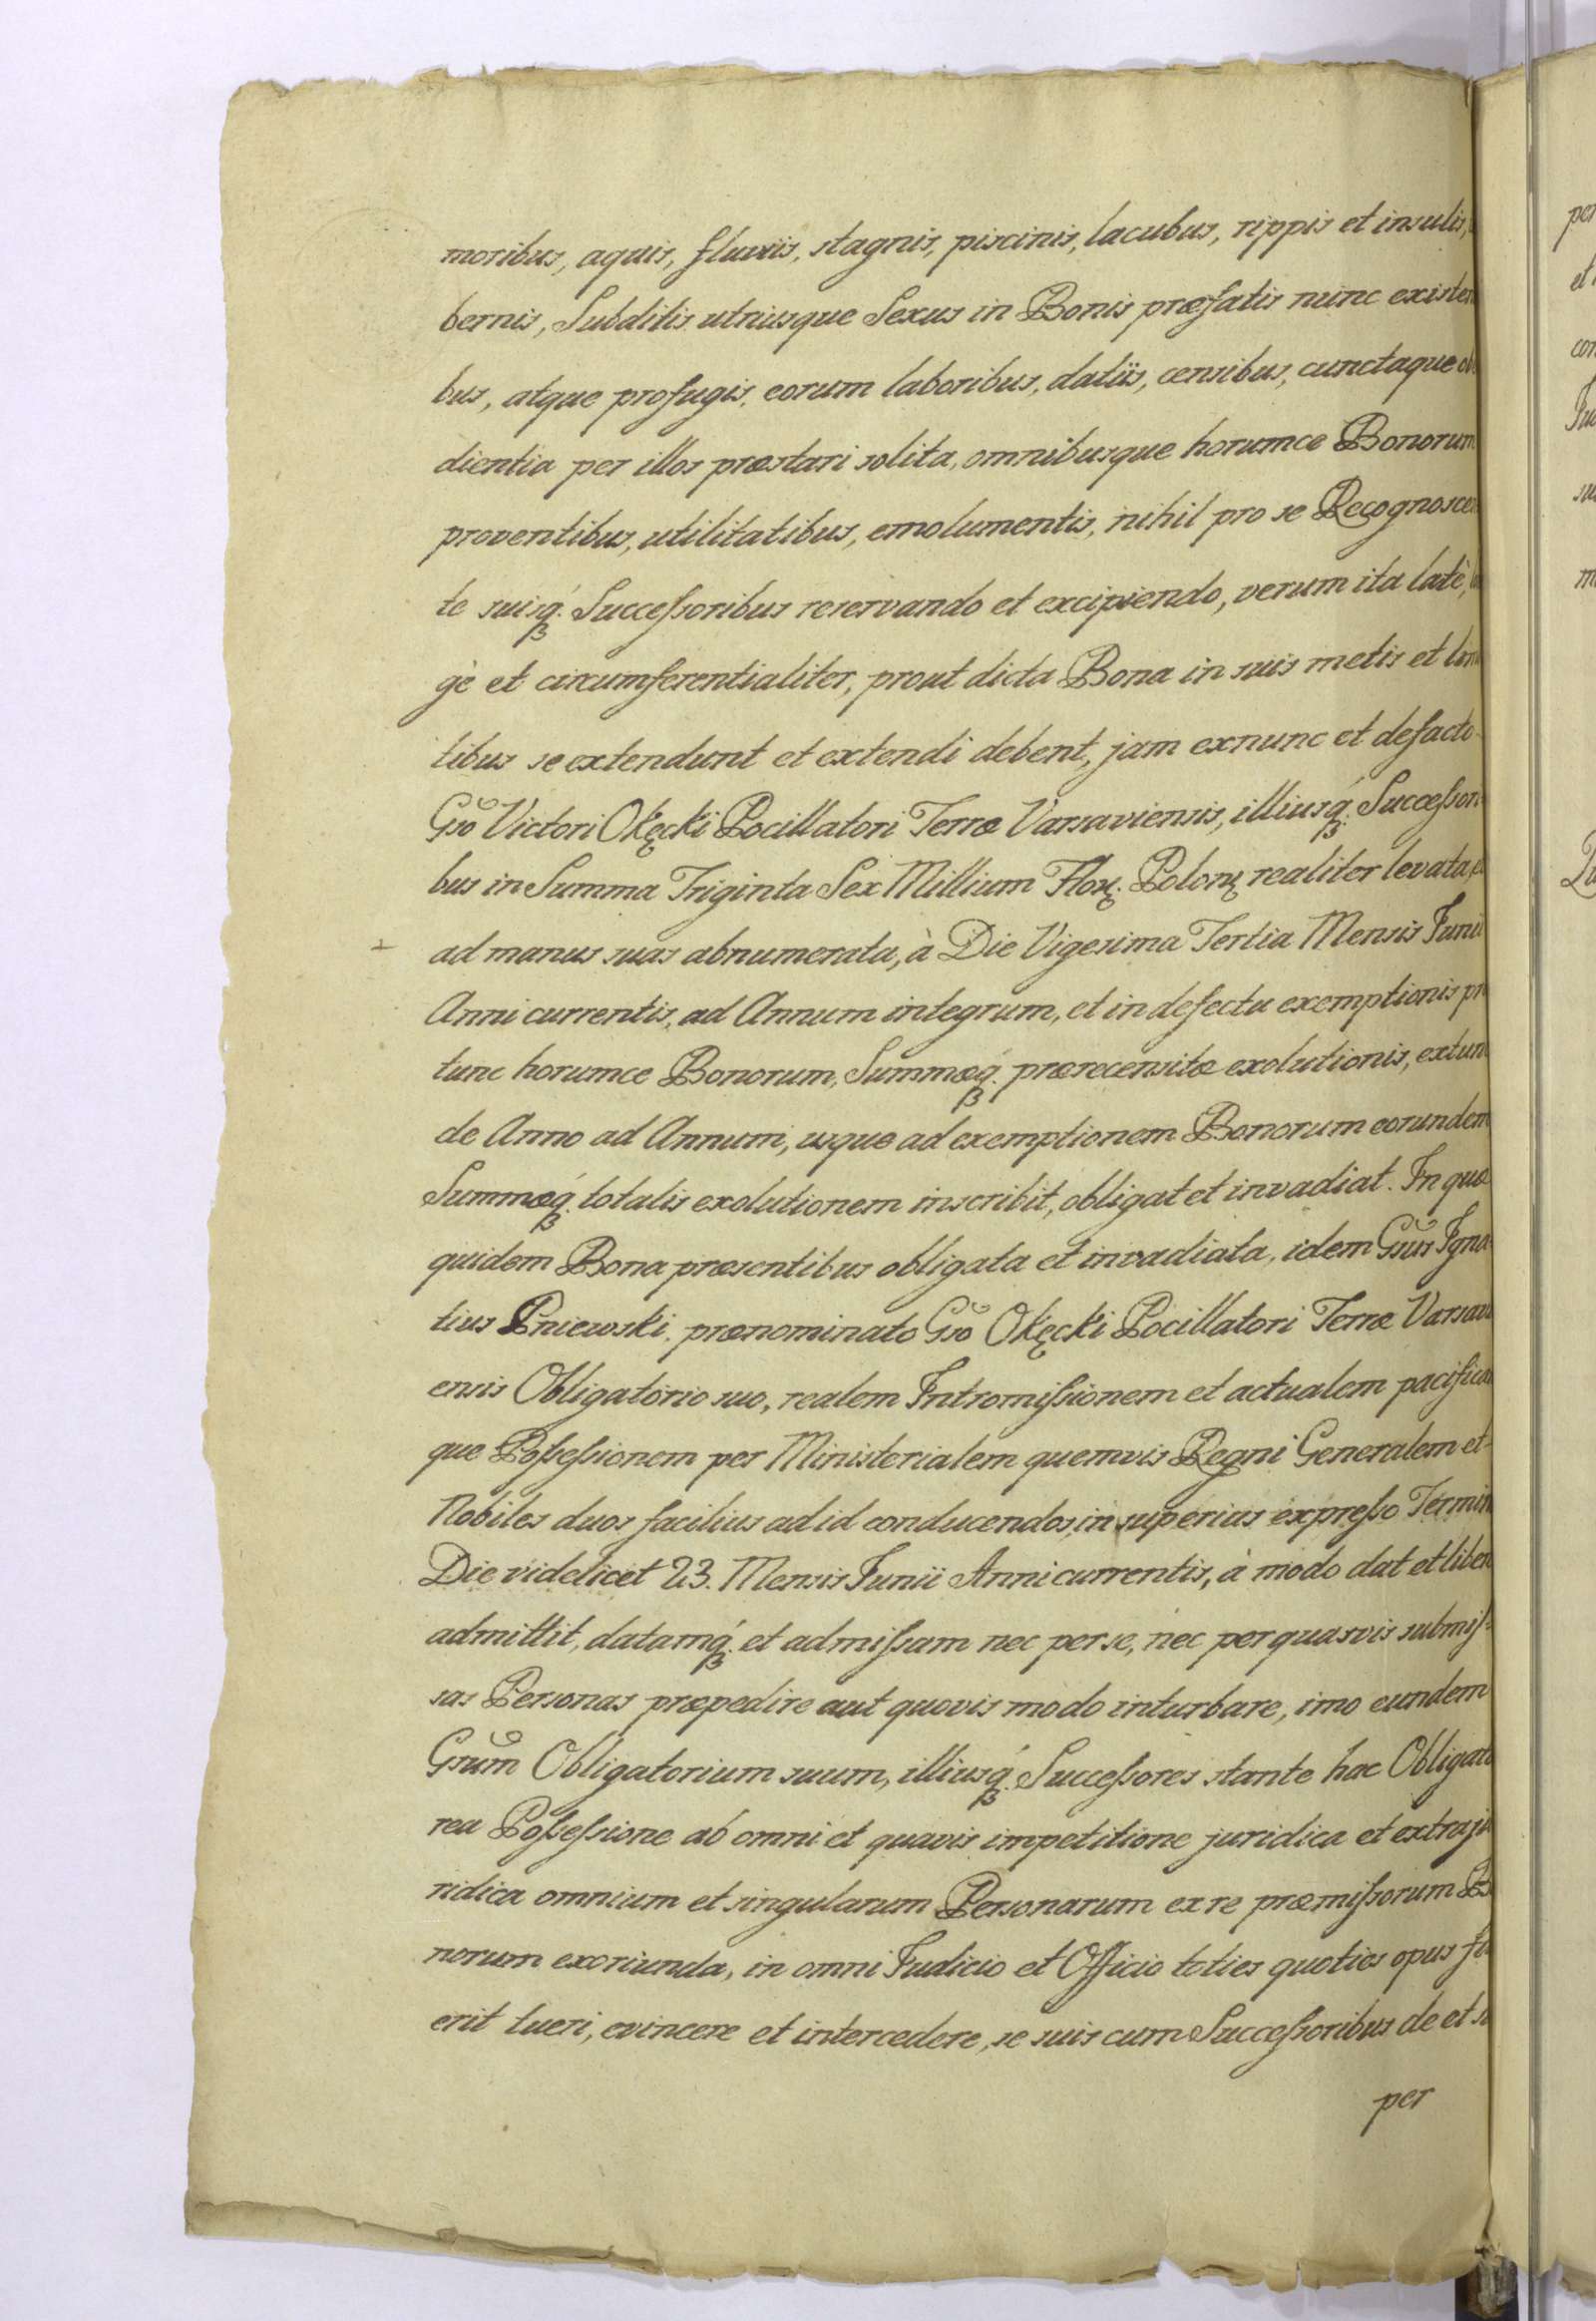 moribus, aquis, fluviis, stagnis, piscinis, lacubus, rippis et insulis,
bernis, Subditis utriusque Sexus in Bonis præfatis nunc existen
bus, atque profugis, eorum laboribus, datiis, censibus, cunctaque ob
dientia per illos præstari solita, omnibusque horumce Bonorum
proventibus, utilitatibus, emolumentis, nihil pro se Recognoscen
te suisq́. Successoribus reservando et excipiendo, verum ita latè,
gè et circumferentialiter, prout dicta Bona in suis metis et lim
tibus se extendunt et extendi debent, jam exnunc et defacto
Gso Victori Okęcki Pocillatori Terræ Varsaviensis, illiusq́. Successori
bus in Summa Triginta Sex Millium Flor. Polon. realiter levata,
ad manus suas abnumerata, à Die Vigesima Tertia Mensis Junii
Anni currentis, ad Annum integrum, et in defectu exemptionis pro
tunc horumce Bonorum, Summæq́. prærecensitæ exolutionis, extunc
de Anno ad Annum, usque ad exemptionem Bonorum eorundem
Summæq́. totalis exolutionem inscribit, obligat et invadiat. In quæ
quidem Bona præsentibus obligata et invadiata, idem Gsus Igna
tius Pniewski prænominato Gso Okęcki Pocillatori Terræ Varsavi
ensis Obligatorio suo, realem Intromissionem et actualem pacificam
que Possessionem per Ministerialem quemvis Regni Generalem et
Nobiles duos facilius ad id conducendos, in superius expresso Termin
Die videlicet 23. Mensis Junii Anni currentis, à modo dat et libere
admittit, datamq́. et admissam nec per se, nec per quasvis submis:
sas Personas præpedire aut quovis modo inturbare, imo eundem
Gsum Obligatorium suum, illiusq́. Successores stante hac Obligato
rea Possessione ab omni et quavis impetitione juridica et extraju
ridica omnium et singularum Personarum ex re præmissorum Bo
norum exoriunda, in omni Judicio et Officio toties quoties opus fu
erit tueri, evincere et intercedere, se suis cum Successoribus de et su
per